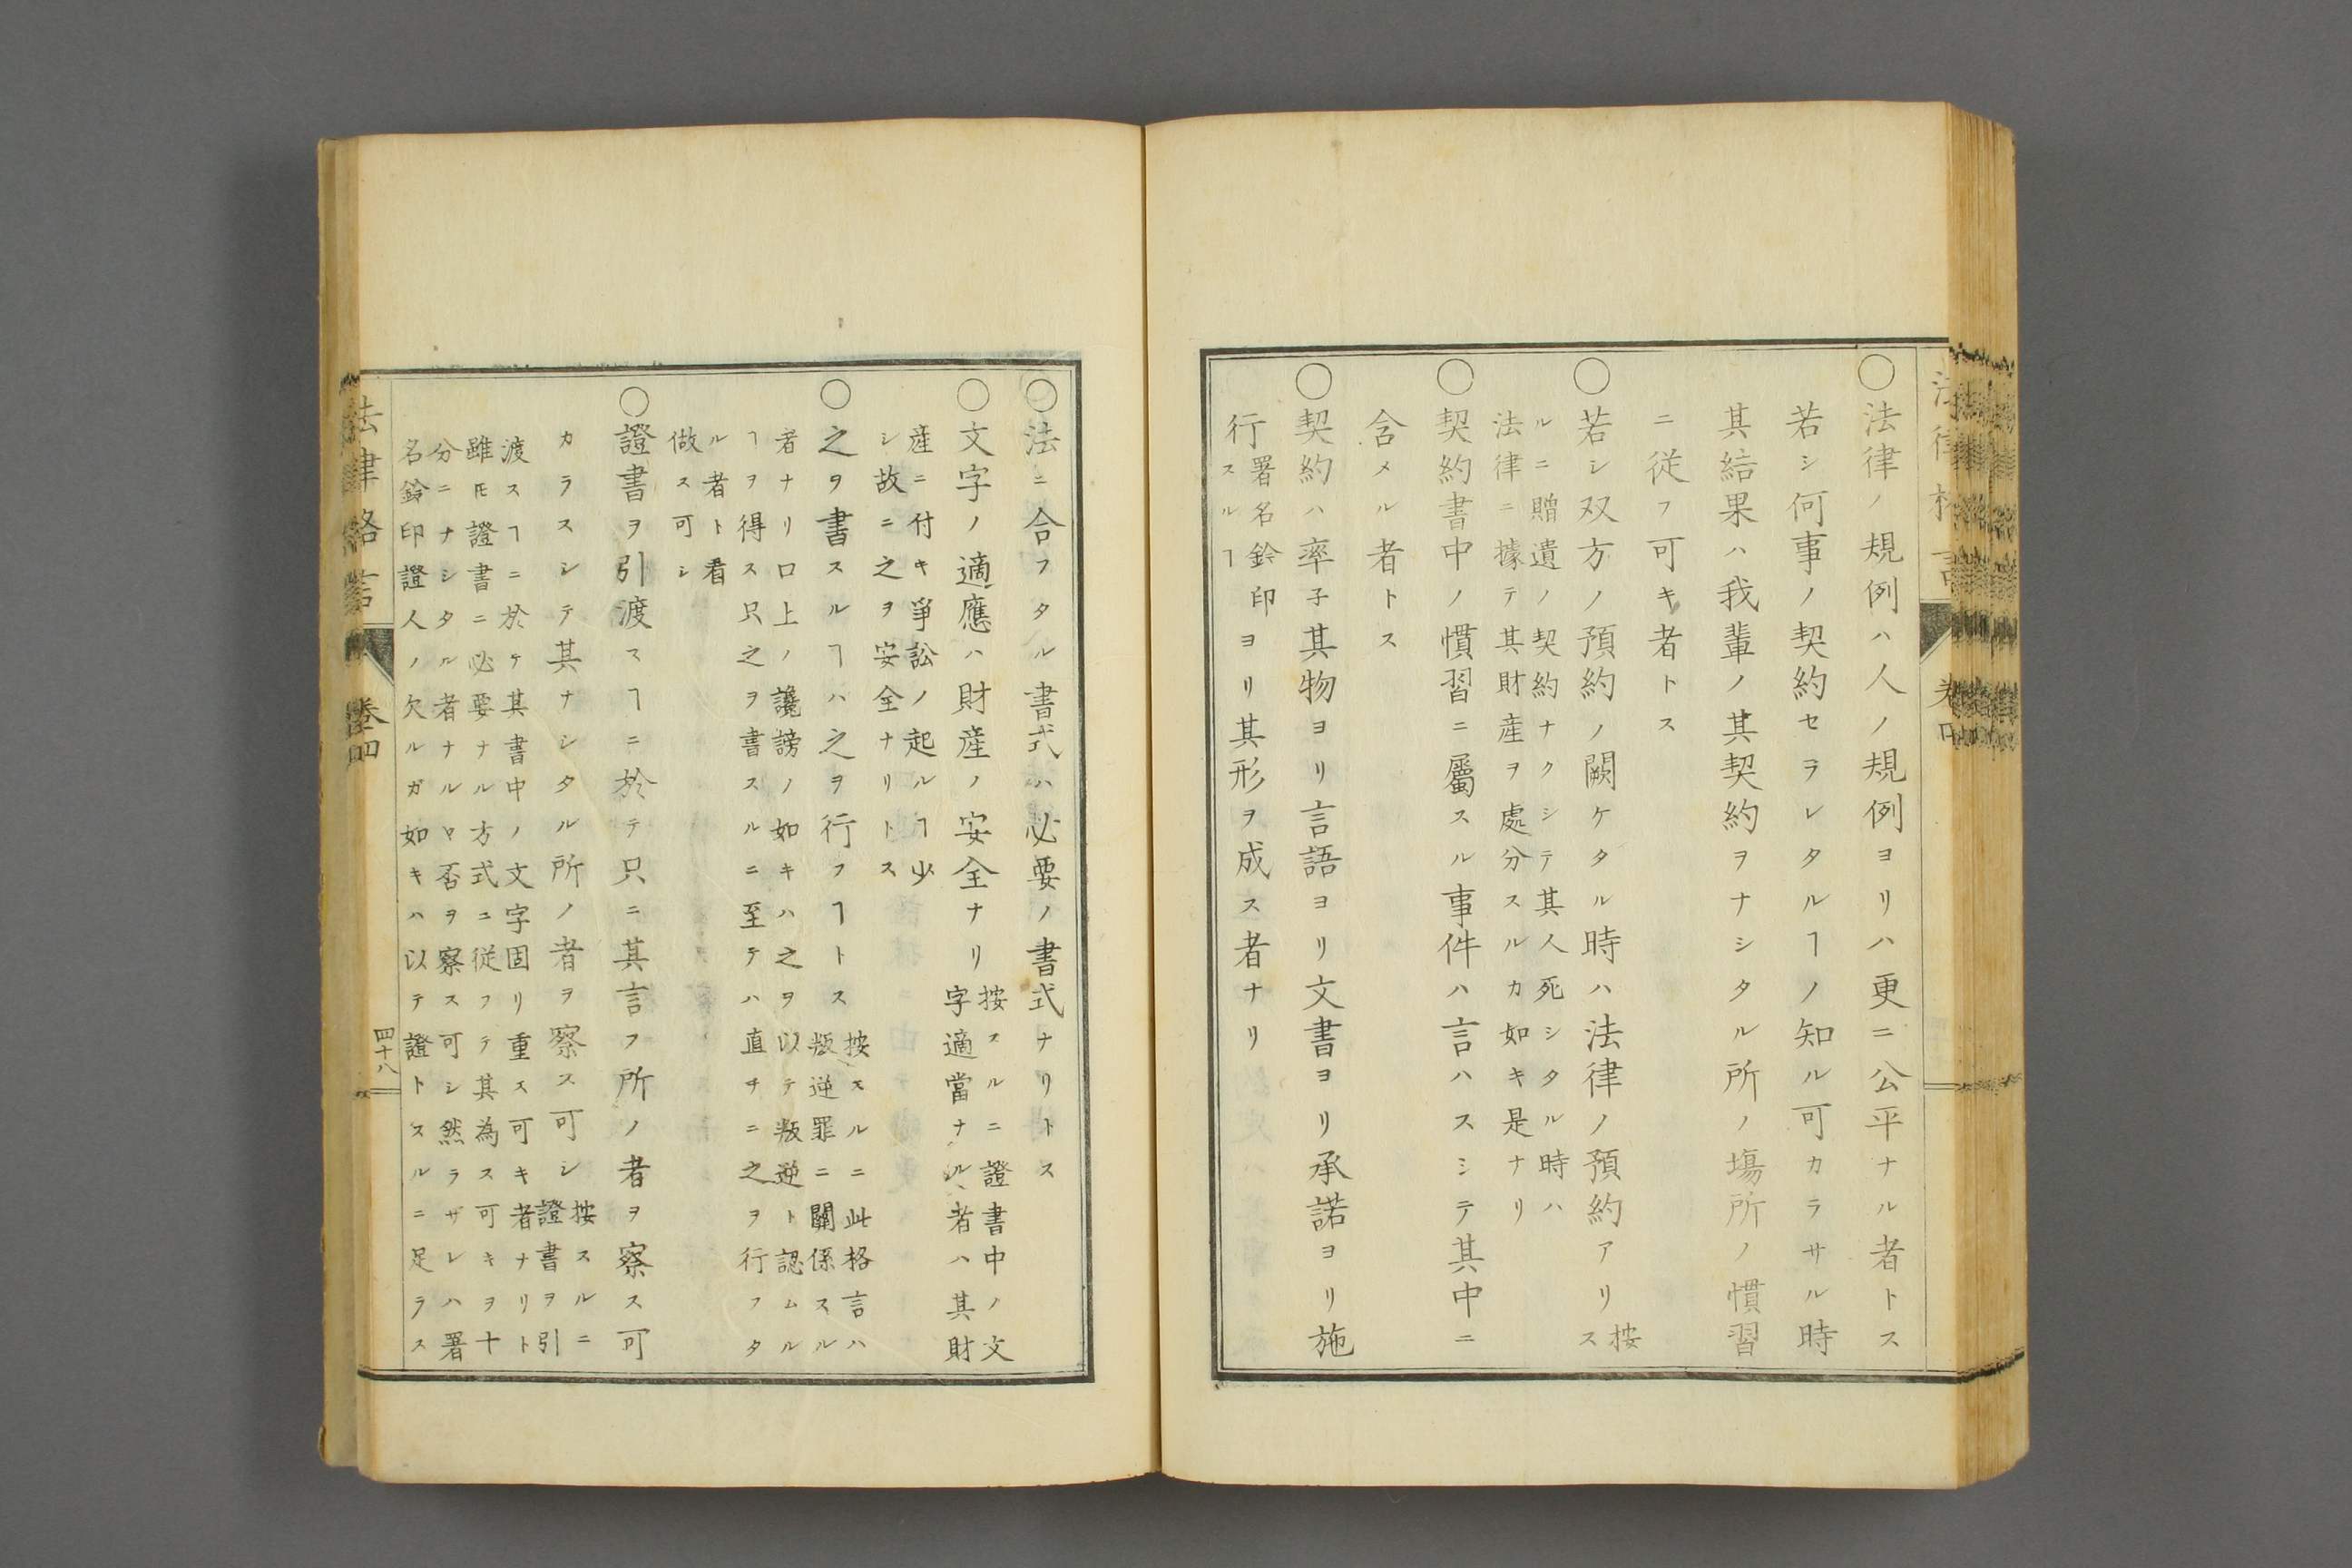 ○法律ノ規例ハ人ノ規例ヨリハ更ニ公平ナル者トス
若シ何事ノ契約セラレタルヿノ知ル可カラサル時
其結果ハ我輩ノ其契約ヲナシタル所ノ塲所ノ慣習
ニ従フ可キ者トス
○若シ双方ノ預約ノ闕ケタル時ハ法律ノ預約アリ按
ス
ルニ贈遺ノ契約ナクシテ其人死シタル時ハ
法律ニ據テ其財産ヲ處分スルカ如キ是ナリ
○契約書中ノ慣習ニ屬スル事件ハ言ハスシテ其中ニ
含メル者トス
○契約ハ率子其物ヨリ言語ヨリ文書ヨリ承諾ヨリ施
行署名鈴印ヨリ其形ヲ成ス者ナリ
スルヿ
○法ニ合フタル書式ハ必要ノ書式ナリトス
○文字ノ適應ハ財産ノ安全ナリ按スルニ證書中ノ文
字適當ナル者ハ其財
産ニ付キ爭訟ノ起ルヿ少
シ故ニ之ヲ安全ナリトス
○之ヲ書スルヿハ之ヲ行フヿトス按スルニ此格言ハ
叛逆罪ニ關係スル
者ナリ口上ノ讒謗ノ如キハ之ヲ以テ叛逆ト認ムル
ヿヲ得ス只之ヲ書スルニ至テハ直チニ之ヲ行フタ
ル者ト看
做ス可シ
○證書ヲ引渡スヿニ於テ只ニ其言フ所ノ者ヲ察ス可
カラスシテ其ナシタル所ノ者ヲ察ス可シ按スルニ
證書ヲ引
渡スヿニ於テ其書中ノ文字固リ重ス可キ者ナリト
雖𪜈證書ニ必要ナル方式ニ従フテ其為ス可キヲ十
分ニナシタル者ナルヤ否ヲ察ス可シ然ラザレハ署
名鈴印證人ノ欠ルガ如キハ以テ證トスルニ足ラス
法律格言
卷四
四十八